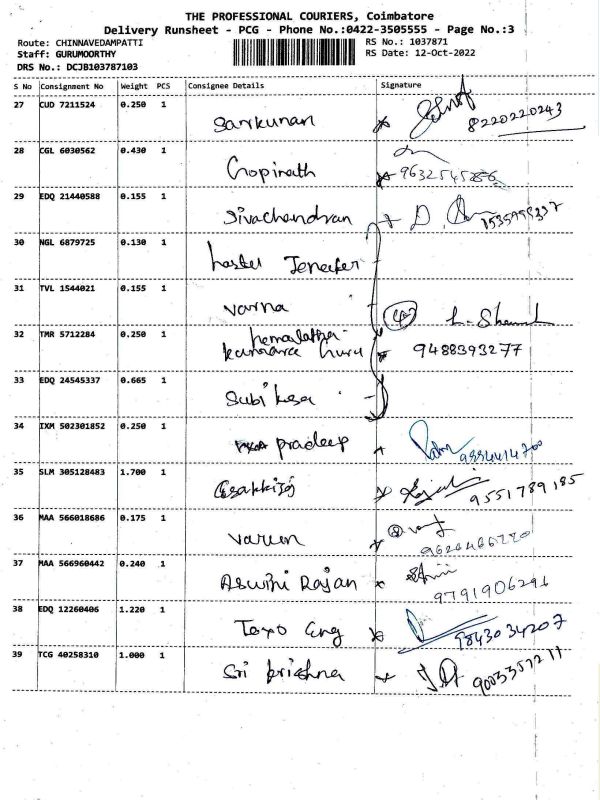 THE PROFESSIONAL COURIERS, Coimbatore
Delivery Runsheet - PCG - Phone No.:0422-3505555 - Page No.:3
Route: CHINNAVEDAMPATTI
Staff: GURUMOORTHY
DRS No.: DCJB103787103
RS No.: 1037871
RS Date: 12-Oct-2022
S No Consignment No Weight PCS Consignee Details Signature
27 CUD 7211524 0.250 1
Sarkunan
8220220243
28 CGL 6030562 0.430 1
Gopinath
29 EDQ 21440588 0.155 1
Sivachandran
30 NGL 6879725 0.130 1
31 TVL 1544021 0.155 1
Varna
32 TMR 5712284 0.250 1
hemalatha
9488393277
33 EDQ 24545337 0.665 1
34 IXM 502301852 0.250 1
pradeep
35 SLM 305128483 1.700 1
9551789185
36 MAA 566018686 0.175 1
Varun
37 MAA 566960442 0.240 1
Aswini Rajan
38 EDQ 12260406 1.220 1
Toyo Eng
9843034207
39 TCG 40258310 1.000 1
Sri krishna